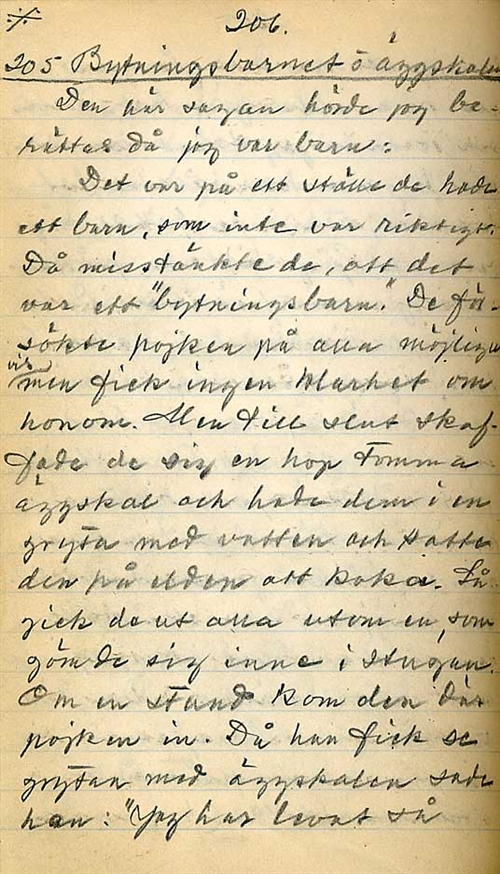 206.
205 Bytningsbarnet o äggskalen
Den här sagan hörde jag be-
rättas då jag var barn:
Det var på ett ställe de hade
ett barn, som inte var riktigt.
Då misstänkte de, att det
var ett "bytningsbarn." De för-
sökte pojken på alla möjliga
vis
men fick ingen klarhet om
honom. Men till slut skaf-
fade de sig en hop tomma
äggskal och hade dem i en
gryta med vatten och satte
den på elden att koka. Så
gick de ut alla utom en, som
gömde sig inne i stugan.
Om en stund kom den där
pojken in. Då han fick se
grytan med äggskalen sade
han: "Jag har levat så